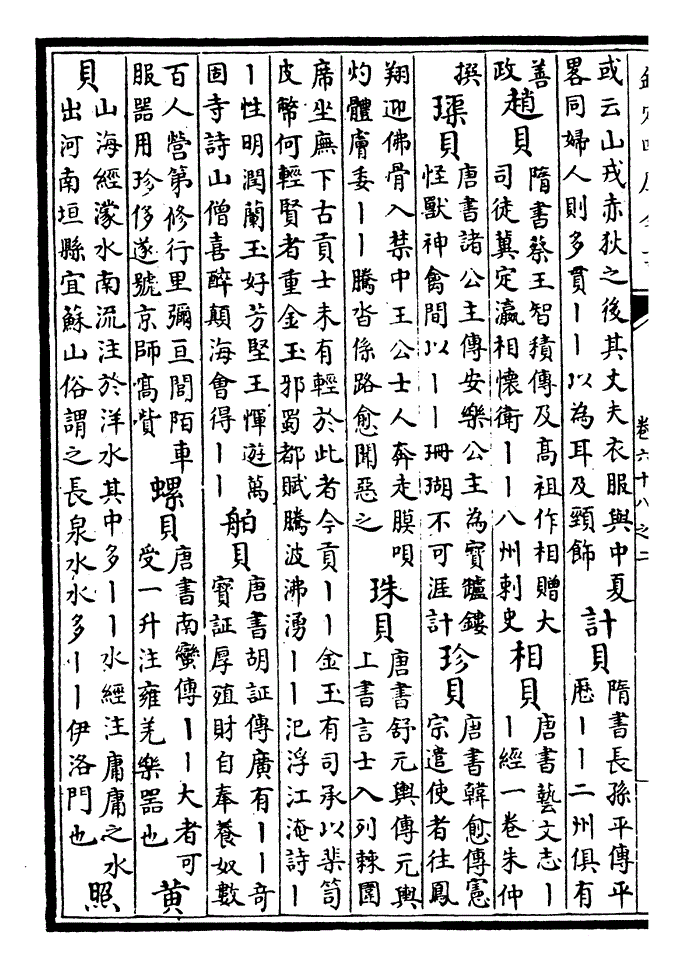 卷六十八之二
或云山戎赤狄之後其丈夫衣服與中夏
畧同婦人則多貫丨丨以為耳及頸飾
計貝
隋書長孫平傳平
歷丨丨二州俱有
善
政
趙貝
隋書蔡王智積傳及高祖作相贈大
司徒冀定瀛相懷衛丨丨八州刺史
相貝
唐書藝文志丨
丨經一卷朱仲
撰
璖貝
唐書諸公主傳安樂公主為寳鑪鏤
怪獸神禽間以丨丨珊瑚不可涯計
珍貝
唐書韓愈傳憲
宗遣使者往鳳
翔迎佛骨入禁中王公士人奔走膜唄
灼體膚委丨丨騰沓係路愈聞惡之
珠貝
唐書舒元輿傳元輿
上書言士入列棘圍
席坐廡下古貢士未有輕於此者今貢丨丨金玉有司承以棐笥
皮幣何輕賢者重金玉邪蜀都賦騰波沸湧丨丨氾浮江淹詩丨
丨性明潤蘭玉好芳堅王惲遊萬
固寺詩山僧喜醉顛海會得丨丨
舶貝
唐書胡証傳廣有丨丨奇
寳証厚殖財自奉養奴數
百人營第修行里彌亘閭陌車
服器用珍侈遂號京師高貲
螺貝
唐書南蠻傳丨丨大者可
受一升注雍羌樂器也
黄
貝
山海經濛水南流注於洋水其中多丨丨水經注庸庸之水
出河南垣縣宜蘇山俗謂之長泉水水多丨丨伊洛門也
照